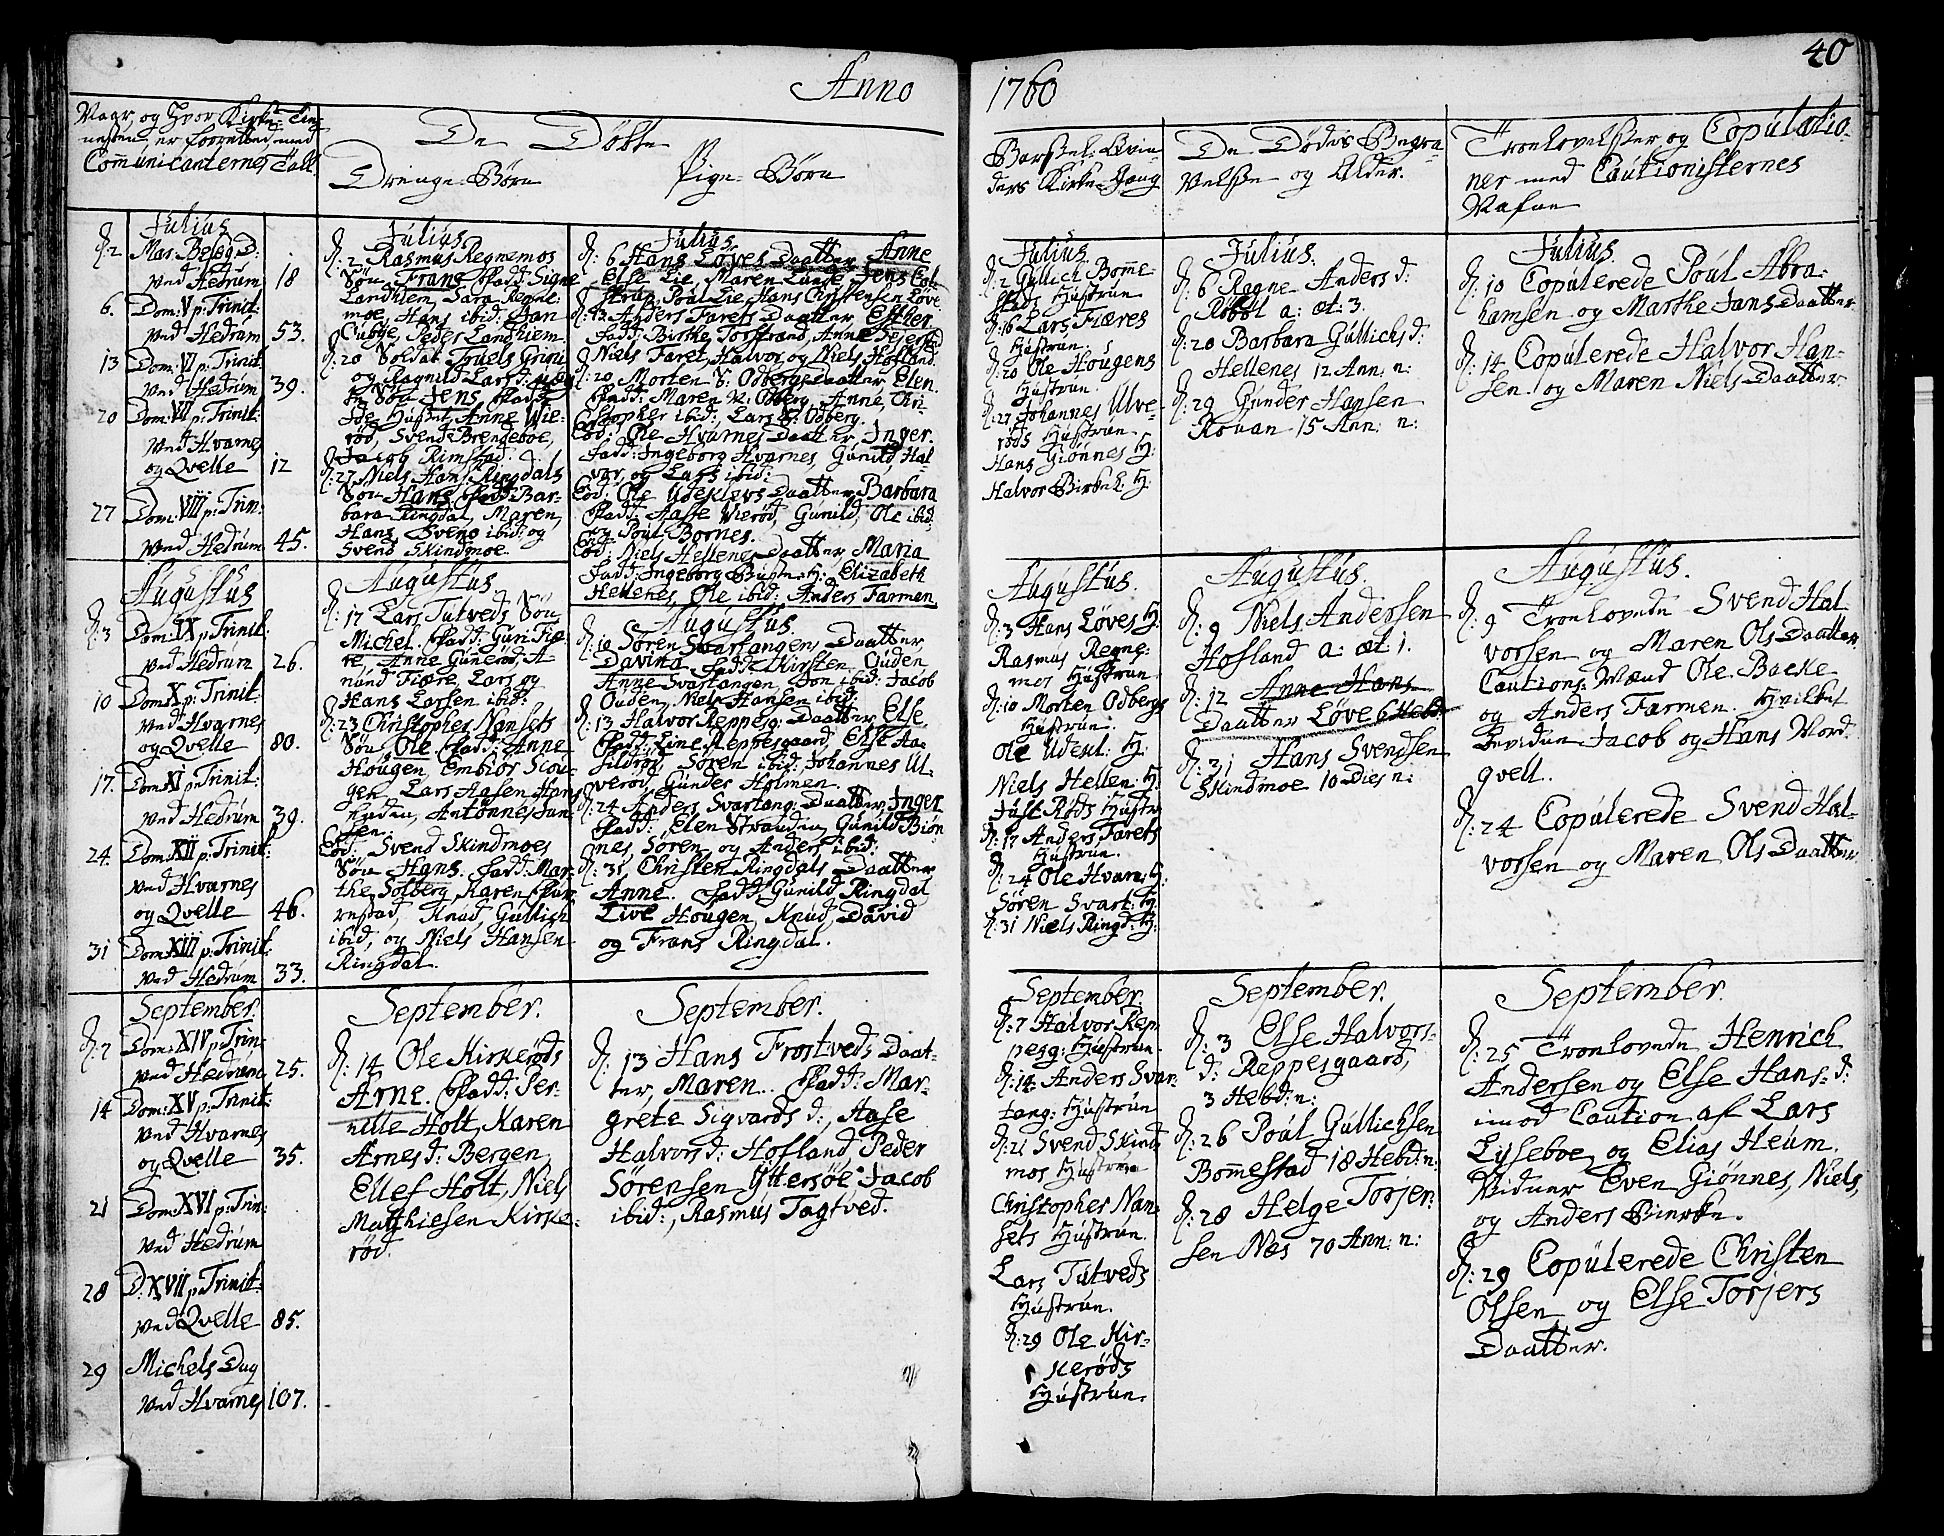 Anno
1760
40
Naar, og Hvor Kirke-Tie-
nesten, er forretted, med
Communicanternes Tall
De Døbte
Drenge-Børn
Pige-Børn
Julius
d: 2 Mar: Besøg D:
ved Hedrum 18
6. Dom: V p: Trinit:
ved Hedrum 53.
13 Dom: VI p: Trinit:
ved Hedrum 39.
20 Dom: VII p: Trinit:
ved Hvarnes
og Qvelle 12
27 Dom: VIII p: Trin:
ved Hedrum 45.
Augustus
d: 3 Dom: IX p: Trinit:
ved Hedrum 26.
10 Dom: X p: Trinit:
ved Hvarnes
og Qvelle 80.
17. Dom: XI p: Trinit:
ved Hedrum 39.
24. Dom: XII p: Trinit:
ved Hvarnes
og Qvelle 46.
31 Dom: XIII p: Trinit:
ved Hedrum 33.
September.
d: 7 Dom: XIV p: Trin:
ved Hedrum 25.
14 Dom: XV p: Trinit:
ved Hvarnes
og Qvelle 35.
21 Dom: XVI p: Trin:
ved Hedrum
28 D: XVII p: Trinit:
ved Qvelle 85.
29 Michels Dag
ved Hvarnes 107.
Julius
d: 2 Rasmus Regnemos
Søn Frans fadd: Signe
Landhiem, Sara Regne-
moe, Hans ibid: Jan
Cubye, Peder Landhiem.
d: 20 Soldat Truels Grini
og Ragnild Lars d:
Søn Jens fadd:
Hustr: Anne Wie-
rød, Svend Brendeboe,
Jacob Rimstad.
d: 27 Niels Hans: Ringdals
Søn Hans fadd: Bar-
bara Ringdal, Maren,
Hans, Svend ibid: og
Svend Skindmoe.
Augustus
d: 17 Lars Tutveds Søn
Michel. fadd: Guri Fiæ-
re, Anne Gunerød, A-
mund Fiære, Lars og
Hans Larsen ibid:
d: 23 Christopher Nansets
Søn Ole. fadd: Anne
Hougen, Embior Scou-
gen, Lars Aasen, Hans
Enden, Antonnes Jan-
sen.
Eod: Svend Skindmoes
Søn Hans. fadd: Mar-
the Solberg, Karen
Knud, Gullich
ibid, og Niels Hansen
Ringdal.
September.
d: 14 Ole Kirkerøds
Arne. fadd: Per-
nille Holt, Karen
Arnes d: Bergen,
Ellef Holt, Niels
Matthiesen Kirke-
rød.
Julius
d: 6 Hans Løves Daatter Anne
Else Lie, Maren Lunde, Jens
Poul Lie, Hans Christensen Løve
d: 12 Anders Farets Daatter Esther
fadd: Birthe Torstrand, Anne
Niels Faret, Halvor, og Niels Hofland.
d: 20 Morten S: Odbergs Daatter Elen.
fadd: Maren N: Odberg, Anne, Chri-
stopher ibid: Lars S: Odberg.
Eod: Ole Hvarnes Daatter, Inger.
fadd: Ingeborg Hvarnes, Gunild, Hal-
vor, og Lars ibid:
Eod: Ole Udeklevs Daatter Barbara
fadd: Aasse Wierød, Gunild, Ole ibid,
og Poul Bornes.
Eod: Niels Hellenes Daatter, Maria
fadd: Ingeborg H: Elizabeth
Hellenes, Ole ibid: Anders Farmen.
Augustus.
d: 10 Søren Svartangens Daatter
Davina fadd: Kirsten Ouden
Anne Svartangen, Jon ibid: Jacob
Ouden, Niels Hansen ibid:
d: 13 Halvor Reppesg: Daatter Else
fadd: Line Reppesgaard, Else Aa-
sildrød, Søren ibid: Johannes Ul-
verød, Gunder Holmen.
d: 24 Anders Svartang: Daatter Inger
fadd: Elen Stranden, Gunild Biøn-
nes, Søren og Anders ibid:
d: 31 Christen Ringdals Daatter
Anne. fadd: Gunild Ringdal
Live Hougen, Knud, David
og Frans Ringdal.
September.
d: 13 Hans Frostveds Daat-
ter, Maren. fadd: Mar-
grete Sigvards d:, Aase
Halvors d: Hofland, Peder
Sørensen Yttersøe, Jacob
ibid:, Rasmus Tagtved.
Barsel: Qvin-
ders Kirke-Gang
Julius
d: 2 Gullich Bomme-
stads Hustrue
d: 16 Lars Fiæres
Hustrue.
d: 20 Ole Hougens
Hustrue.
d: 27 Johannes Ulve-
røds Hustrue.
Hans Giønnes H:
Halvor Birkel: H:
Augustus.
d: 3 Hans Løves H:
Rasmus Regne-
mos Hustrue
d: 10 Morten Odbergs
Hustrue.
Ole Udekl: H:
Niels Hellen: H:
Juel Røds Hustr:
d: 17 Anders Farets
Hustrue.
d: 24 Ole Hvarn: H:
Søren Svart: H:
d: 31 Niels Ringd: H:
September.
d: 7 Halvor Rep-
pesg: Hustrue.
d: 14 Anders Svar-
tang: Hustrue
d: 21 Svend Skind-
mos Hustrue
Christopher Nan-
sets Hustrue.
Lars Tutveds
Hustrue.
d: 29 Ole Kir-
kerøds
Hustrue.
De Dødes Begra-
velse og Alder.
Julius.
d: 6 Ragne Anders d:
Røbøl a: æt: 3.
d: 20 Barbara Gullichs d:
Hellenes 12 Ann: n:
d: 29 Gunder Hansen
Rouan 15 Ann: n:
Augustus.
d: 9 Niels Andersen
Hofland a: æt: 1.
d: 12 Anne Hans
Daatter Løve 6 Hebd:
d: 21 Hans Svendsen
Skindmoe 10 Dies n:
September.
d: 3 Else Halvors-
d: Reppesgaard,
3 Hebd: n:
d: 26 Poul Gullichsen
Bommestad 18 Hebd: n:
d: 28 Helge Torjer-
sen Næs 70 Ann: n:
Troelovelser og Copulatio-
ner med Cautionisternes
Nafne
Julius.
d: 10 Copulerede Poul Abra-
hamsen og Marthe Jans Daatter
d: 14 Copulerede Halvor Han-
sen og Maren Niels Daatter
Augustus.
d: 9 Troelovede Svend Hal-
vorsen og Maren Ols Daatter
Cautions-Mænd Ole Bakke
og Anders Farmen. Hvilket
bevidner Jacob og Hans Nord-
qvell.
d: 24 Copulerede Svend Hal-
vorsen og Maren Ols Daatter
September.
d: 25 Troelovede Henrich
Andersen og Else Hans d:
imod Caution af Lars
Lysseboe, og Elias Heum.
Vidner Even Giønnes, Niels,
og Anders Bierke.
d: 29 Copulerede Christen
Olsen og Else Torjers
Daatter.